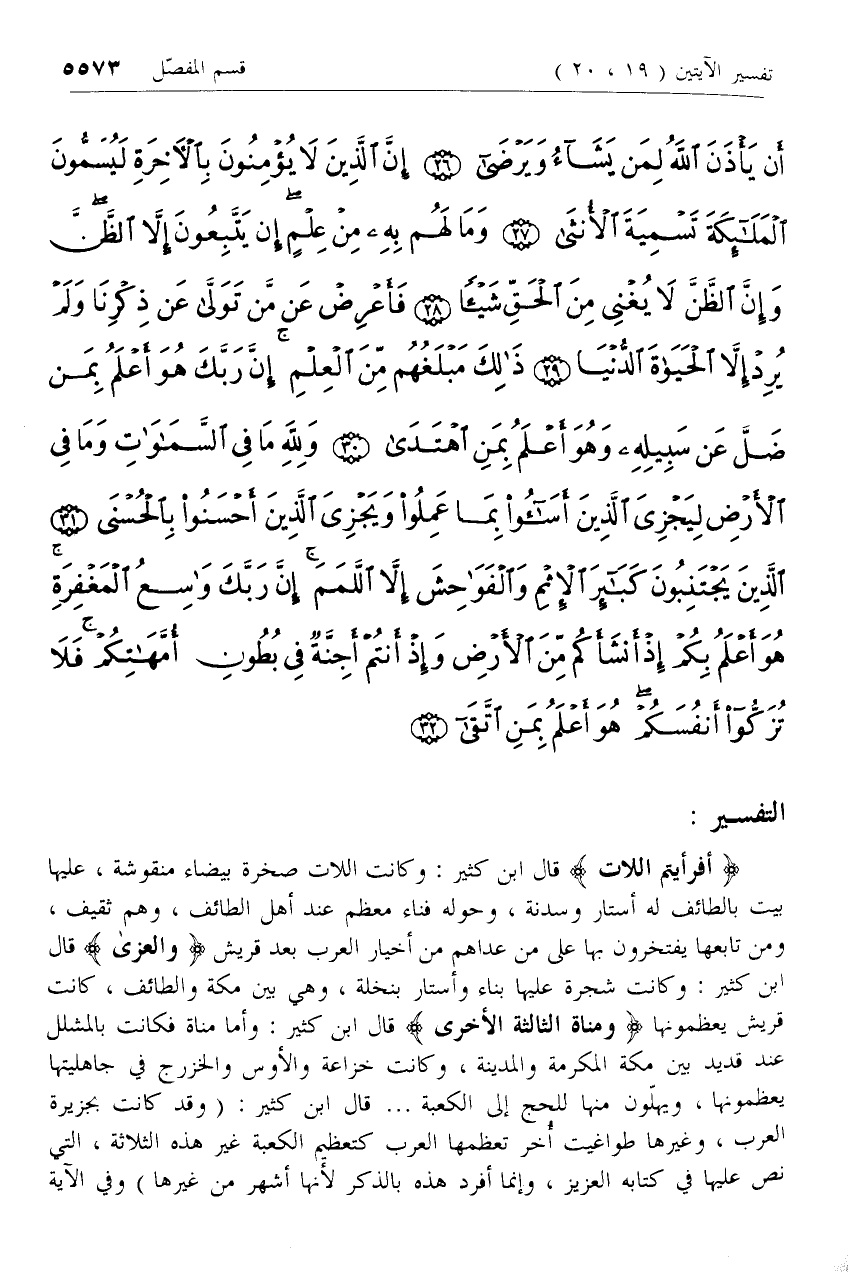 تفسير الآيتين ( ١٩ ، ٢٠ ) قسم المفصّل ٥٥٧٣
أَن يَأْذَنَ ٱللَّهُ لِمَن يَشَآءُ وَيَرْضَىٰٓ ﴿٢٦﴾ إِنَّ ٱلَّذِينَ لَا يُؤْمِنُونَ بِٱلْأَخِرَةِ لَيُسَمُّونَ
ٱلْمَلَٰٓئِكَةَ تَسْمِيَةَ ٱلْأُنثَىٰ ﴿٢٧﴾ وَمَا لَهُم بِهِۦ مِنْ عِلْمٍ ۖ إِن يَتَّبِعُونَ إِلَّا ٱلظَّنَّ ۖ
وَإِنَّ ٱلظَّنَّ لَا يُغْنِى مِنَ ٱلْحَقِّ شَيْـًٔا ﴿٢٨﴾ فَأَعْرِضْ عَن مَّن تَوَلَّىٰ عَن ذِكْرِنَا وَلَمْ
يُرِدْ إِلَّا ٱلْحَيَوٰةَ ٱلدُّنْيَا ﴿٢٩﴾ ذَٰلِكَ مَبْلَغُهُم مِّنَ ٱلْعِلْمِ ۚ إِنَّ رَبَّكَ هُوَ أَعْلَمُ بِمَن
ضَلَّ عَن سَبِيلِهِۦ وَهُوَ أَعْلَمُ بِمَنِ ٱهْتَدَىٰ ﴿٣٠﴾ وَلِلَّهِ مَا فِى ٱلسَّمَٰوَٰتِ وَمَا فِى
ٱلْأَرْضِ لِيَجْزِىَ ٱلَّذِينَ أَسَٰٓـُٔوا۟ بِمَا عَمِلُوا۟ وَيَجْزِىَ ٱلَّذِينَ أَحْسَنُوا۟ بِٱلْحُسْنَى ﴿٣١﴾
ٱلَّذِينَ يَجْتَنِبُونَ كَبَٰٓئِرَ ٱلْإِثْمِ وَٱلْفَوَٰحِشَ إِلَّا ٱللَّمَمَ ۚ إِنَّ رَبَّكَ وَٰسِعُ ٱلْمَغْفِرَةِ ۚ
هُوَ أَعْلَمُ بِكُمْ إِذْ أَنشَأَكُم مِّنَ ٱلْأَرْضِ وَإِذْ أَنتُمْ أَجِنَّةٌ فِى بُطُونِ أُمَّهَٰتِكُمْ ۚ فَلَا
تُزَكُّوٓا۟ أَنفُسَكُمْ ۖ هُوَ أَعْلَمُ بِمَنِ ٱتَّقَىٰٓ ﴿٣٢﴾
التفسير :
﴿ أفرأيتم اللات ﴾ قال ابن كثير : وكانت اللات صخرة بيضاء منقوشة ، عليها
بيت بالطائف له أستار وسدنة ، وحوله فناء معظم عند أهل الطائف ، وهم ثقيف ،
ومن تابعها يفتخرون بها على من عداهم من أخيار العرب بعد قريش ﴿ والعزىٰ ﴾ قال
ابن كثير : وكانت شجرة عليها بناء وأستار بنخلة ، وهي بين مكة والطائف ، كانت
قريش يعظمونها ﴿ ومناة الثالثة الأخرى ﴾ قال ابن كثير : وأما مناة فكانت بالمشلل
عند قديد بين مكة المكرمة والمدينة ، وكانت خزاعة والأوس والخزرج في جاهليتها
يعظمونها ، ويهلّون منها للحج إلى الكعبة ... قال ابن كثير : ( وقد كانت بجزيرة
العرب ، وغيرها طواغيت أُخر تعظمها العرب كتعظيم الكعبة غير هذه الثلاثة ، التي
نص عليها في كتابه العزيز ، وإنما أفرد هذه بالذكر لأنها أشهر من غيرها ) وفي الآية